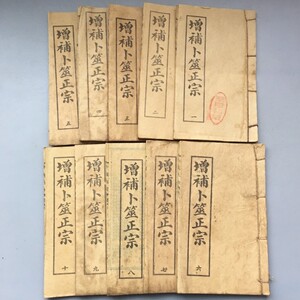 增補卜筮正宗 五
增補卜筮正宗 四
增補卜筮正宗 三
增補卜筮正宗 二
增補卜筮正宗 一
增補卜筮正宗 十
增補卜筮正宗 九
增補卜筮正宗 八
增補卜筮正宗 七
增補卜筮正宗 六